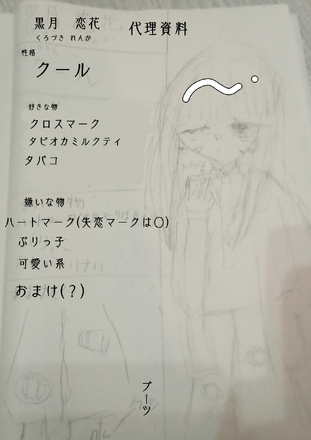 黒月 恋花
くろづき れんか
代理資料
性格
クール
好きな物
クロスマーク
タピオカミルクティ
タバコ
嫌いな物
ハートマーク(失恋マークは〇)
ぶりっ子
可愛い系
おまけ(?)
ブーツ